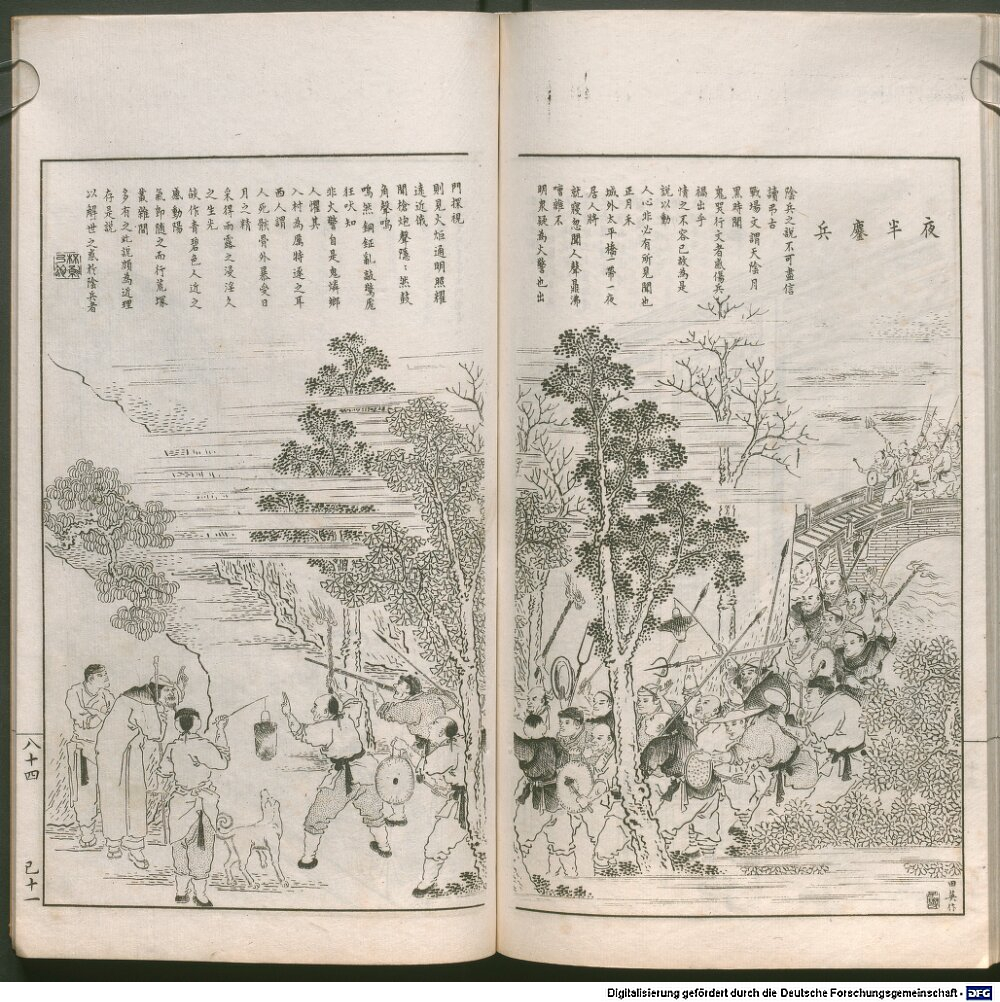 夜半鏖兵
陰兵之說不可盡信
讀弔古
戰場文謂天陰月
黑時聞
鬼哭行文者感傷兵
禍出乎
情之不容已故為是
說以動
人心非必有所見聞也
正月朱
城外太平橋一帶一夜
居人將
就寢忽聞人聲鼎沸
嘈雜不
明衆疑為火警也出
門探視
則見火炬通明照耀
遠近俄
聞槍炮聲隱隱然鼓
角聲鳴
鳴然銅鉦亂敲驚厖
狂吠知
非火警自是鬼燐鄉
人懼其
入村為厲特逐之耳
西人謂
人死骸骨外暴受日
月之精
采得雨露之浸淫久
之生光
皎作青碧色人近之
感動陽
氣即隨之而行荒塚
叢雜間
多有之此說頗為近理
存是說
以解世之惑於陰兵者
田英作
八十四
巳十一
Digitalisierung gefördert durch die Deutsche Forschungsgemeinschaft - DFG